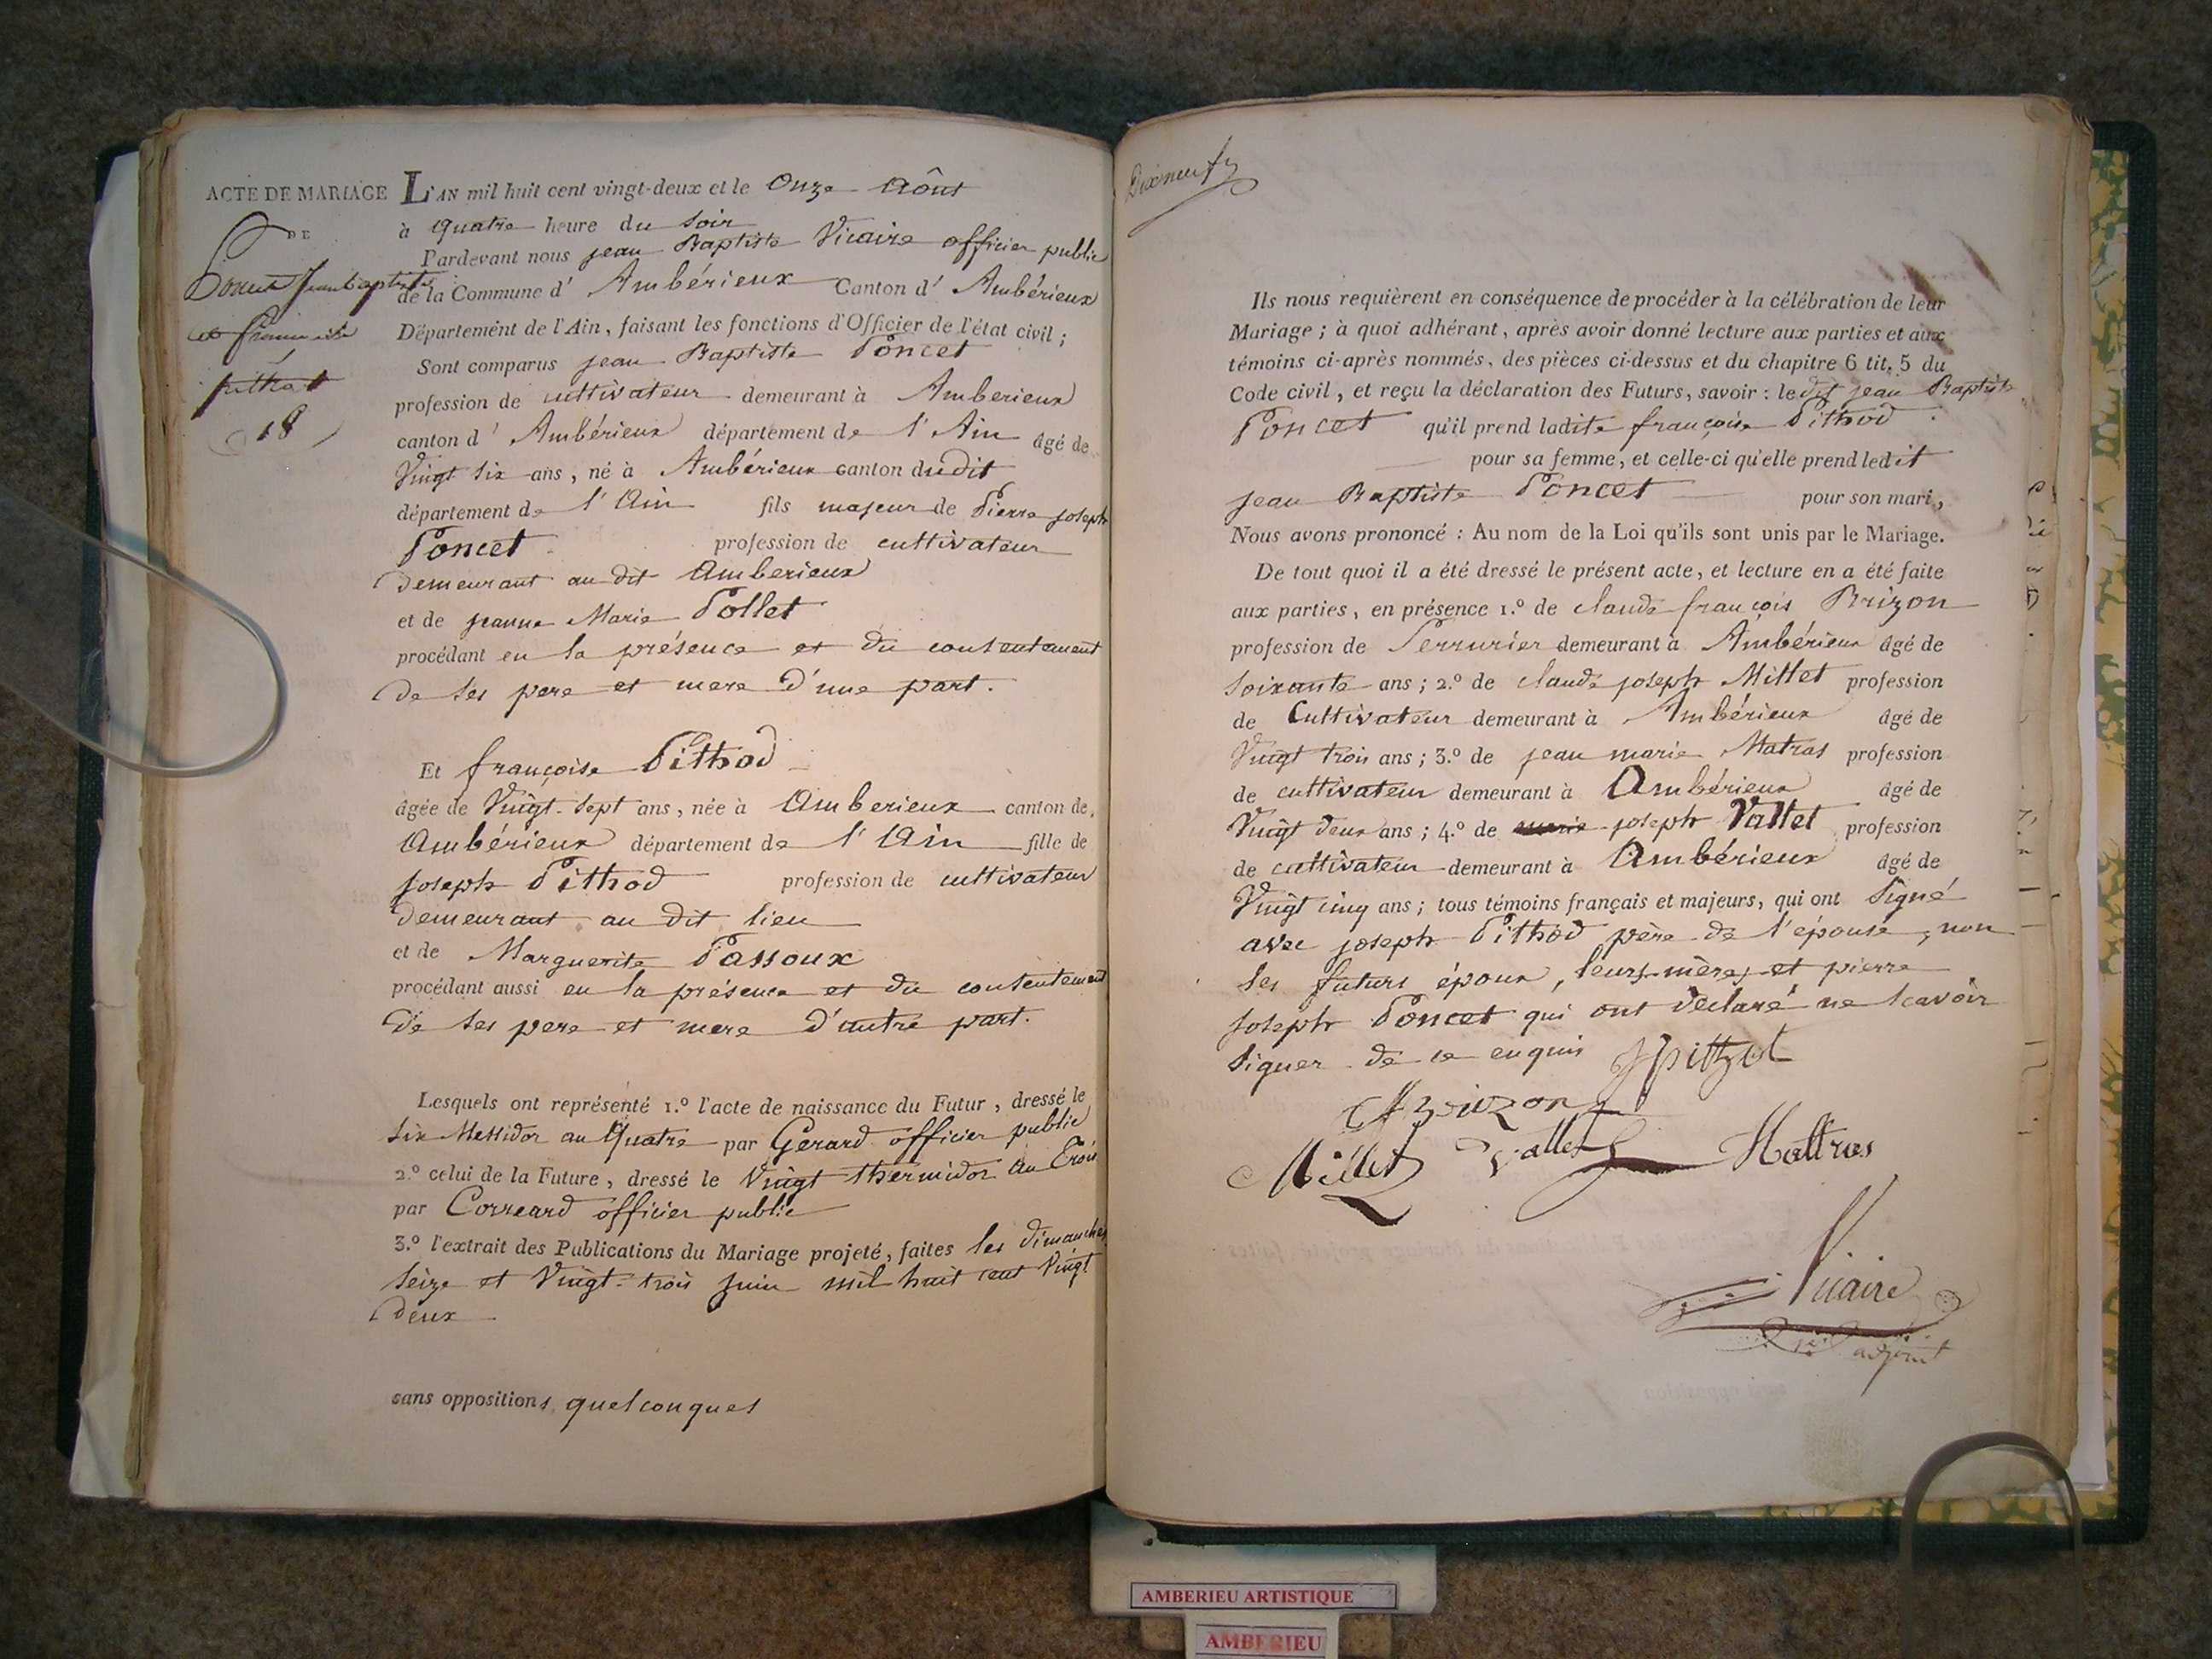 ACTE DE MARIAGE
DE
Poncet Jean baptiste
et francoise
pithod
18
L'AN mil huit cent vingt-deux et le Onze Aôut
à quatre heure du soir
Pardevant nous jean Baptiste Vicaire officier public
de la Commune d' Ambérieux Canton d' Ambérieux
Département de l'Ain, faisant les fonctions d'Officier de l'état civil ;
Sont comparus jean Baptiste Poncet
profession de cultivateur demeurant à Amberieux
canton d' Ambérieux département de l'Ain âgé de
Vingt six ans, né à Ambérieux canton du dit
département de l'Ain fils majeur de Pierre joseph
Poncet profession de cultivateur
demeurant au dit Amberieux
et de jeanne Marie Pollet
procédant en la présence et du consentement
de ses pere et mere d'une part.
Et françoise Pithod
âgée de Vingt-sept ans, née à Amberieux canton de
Ambérieux département de l'Ain fille de
joseph Pithod profession de cultivateur
demeurant au dit lieu
et de Marguerite Passoux
procédant aussi en la présence et du consentement
de ses pere et mere d'autre part.
Lesquels ont représenté 1.º l'acte de naissance du Futur, dressé le
six Messidor an Quatre par Gerard officier public
2.º celui de la Future, dressé le Vingt thermidor an Trois
par Correard officier public
3.º l'extrait des Publications du Mariage projeté, faites les dimanches
seize et Vingt-trois juin mil huit cent Vingt
deux
sans oppositions quelconques
Dixneuf
Ils nous requièrent en conséquence de procéder à la célébration de leur
Mariage ; à quoi adhérant, après avoir donné lecture aux parties et aux
témoins ci-après nommés, des pièces ci-dessus et du chapitre 6 tit. 5 du
Code civil, et reçu la déclaration des Futurs, savoir : le dit jean Baptiste
Poncet qu'il prend ladite françoise Pithod
pour sa femme, et celle-ci qu'elle prend ledit
jean Baptiste Poncet pour son mari,
Nous avons prononcé : Au nom de la Loi qu'ils sont unis par le Mariage.
De tout quoi il a été dressé le présent acte, et lecture en a été faite
aux parties, en présence 1.º de claude françois Brizon
profession de Serrurier demeurant à Ambérieux âgé de
soixante ans ; 2.º de claude joseph Millet profession
de Cultivateur demeurant à Ambérieux âgé de
Vingt trois ans ; 3.º de jean marie Matras profession
de cultivateur demeurant à Ambérieux âgé de
Vingt deux ans ; 4.º de marie joseph Vallet profession
de cultivateur demeurant à Ambérieux âgé de
Vingt cinq ans ; tous témoins français et majeurs, qui ont signé
avec joseph Pithod père de l'épouse, non
les futurs époux, leurs mères et pierre
joseph Poncet qui ont déclaré ne scavoir
signer de ce enquis
Brizon
Millet Vallet Mattras
Vicaire
adjoint
AMBERIEU ARTISTIQUE
AMBERIEU